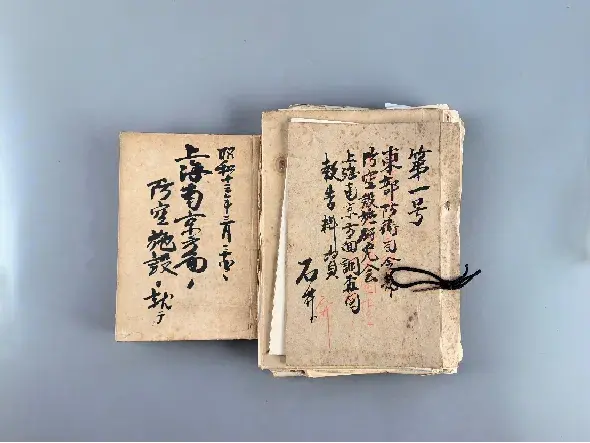 第一号
東部防衛司令部
防空設施研究会
上海南京方面調査団
報告料資
石井
昭和十三年三月
上海南京方面
防空施設
就テ